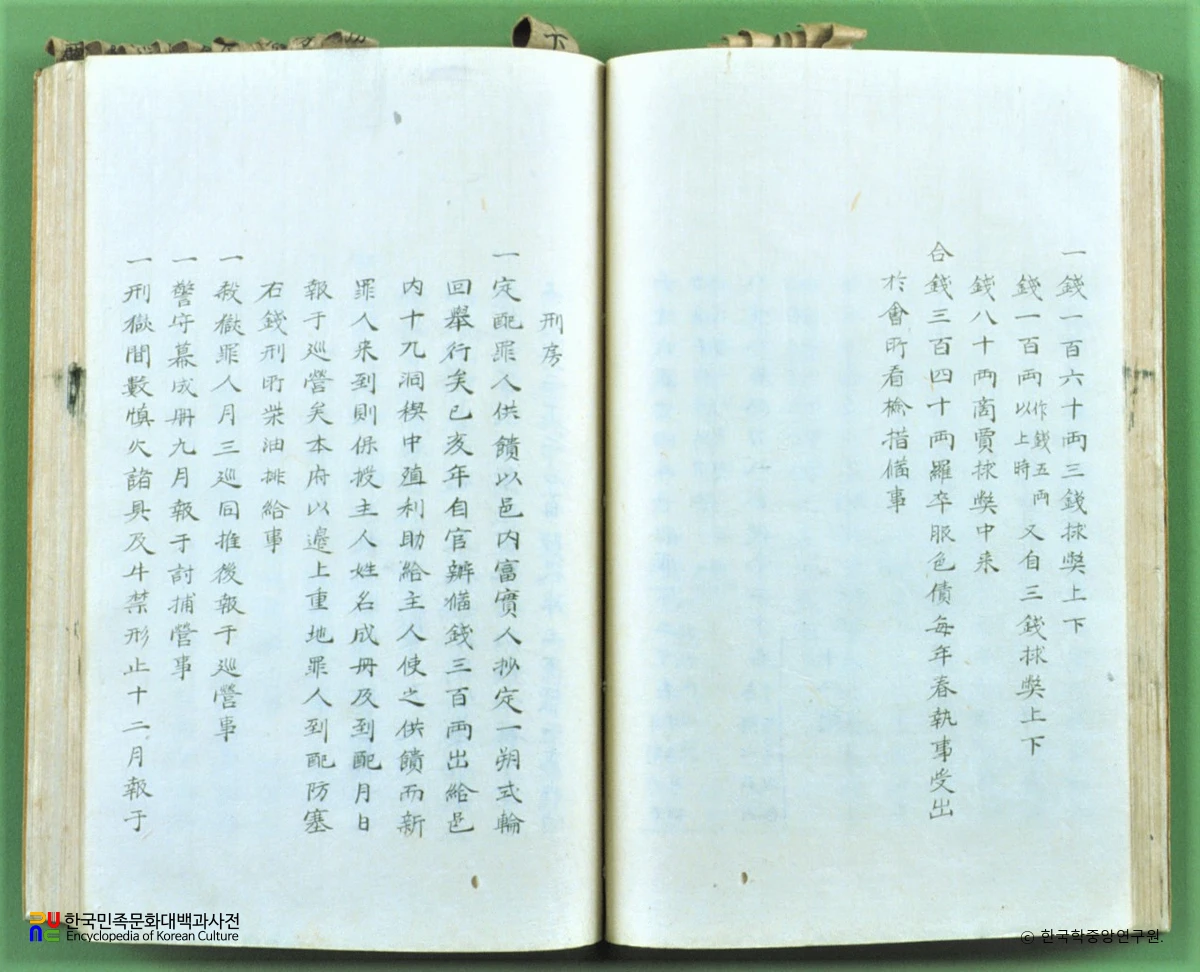 一錢一百六十両三錢捄獘上下
錢一百両以上時作錢五両又自三錢捄獘上下
錢八十両商賈捄獘中来
合錢三百四十両羅卒服色債每年春執事受出
於會所看檢措備事
刑房
一定配罪人供饋以邑内富實人抄定一朔式輪
回舉行矣己亥年自官辦備錢三百両出給邑
内十九洞稧中殖利助給主人使之供饋而新
罪人来到則保授主人姓名成冊及到配月日
報于巡營矣本府以邊上重地罪人到配防塞
右錢刑所柴油排給事
一殺獄罪人月三巡同推後報于巡營事
一警守幕成冊九月報于討捕營事
一刑獄間數慎火諸具及牛禁形止十二月報于
한국민족문화대백과사전
Encyclopedia of Korean Culture
© 한국학중앙연구원.